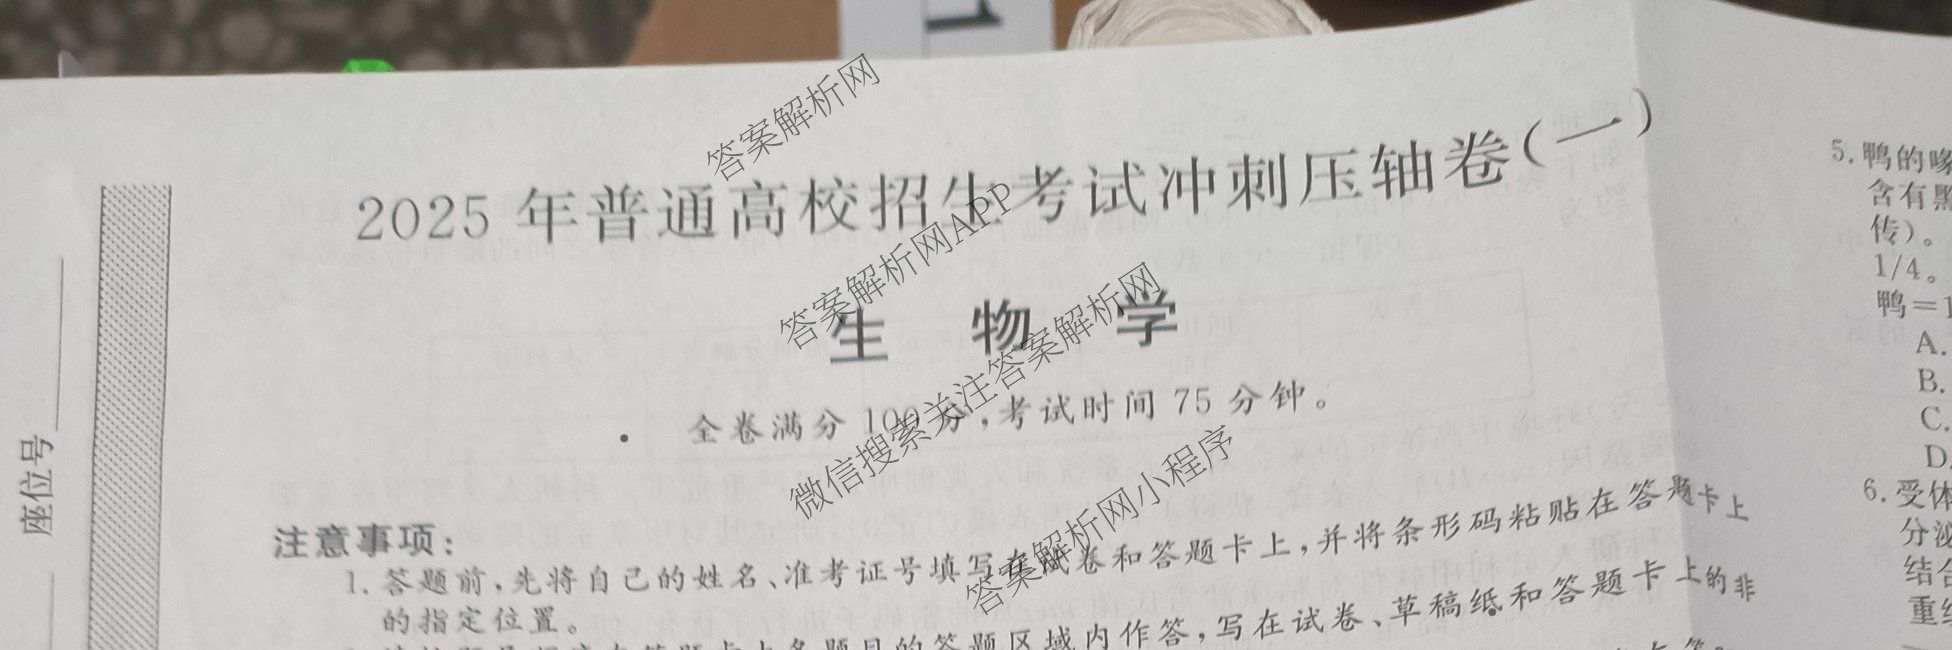 2025年普通高校招生考试冲刺压轴卷(一)
生 物 学
全卷满分100分,考试时间75分钟。
座位号
注意事项:
1. 答题前,先将自己的姓名、准考证号填写在试卷和答题卡上,并将条形码粘贴在答题卡上
的指定位置。
题目的答题区域内作答,写在试卷、草稿纸和答题卡上的非
5. 鸭的喙
含有黑
传)。
1/4。
鸭=1
A.
B.
C.
D.
6. 受体
分泌
结合
重组
答案解析网
答案解析网APP
微信搜索关注答案解析网
答案解析网小程序